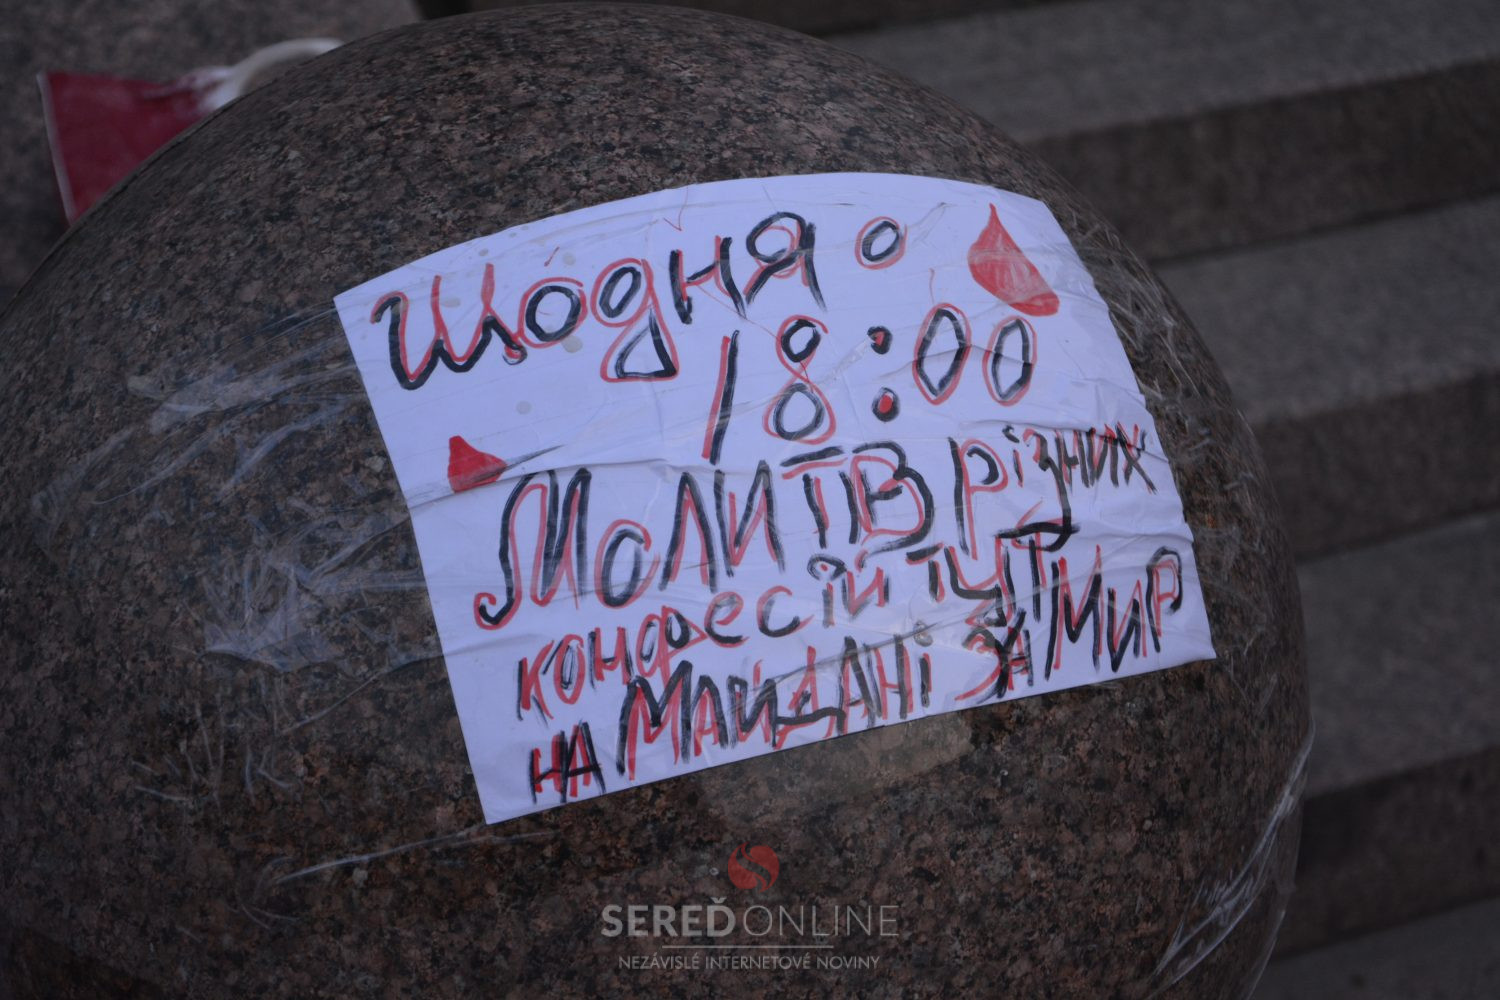 Щодня о
18:00
Молитв різних
конфесій тут
на Майдані за Мир
SEREĎONLINE
NEZÁVISLÉ INTERNETOVÉ NOVINY